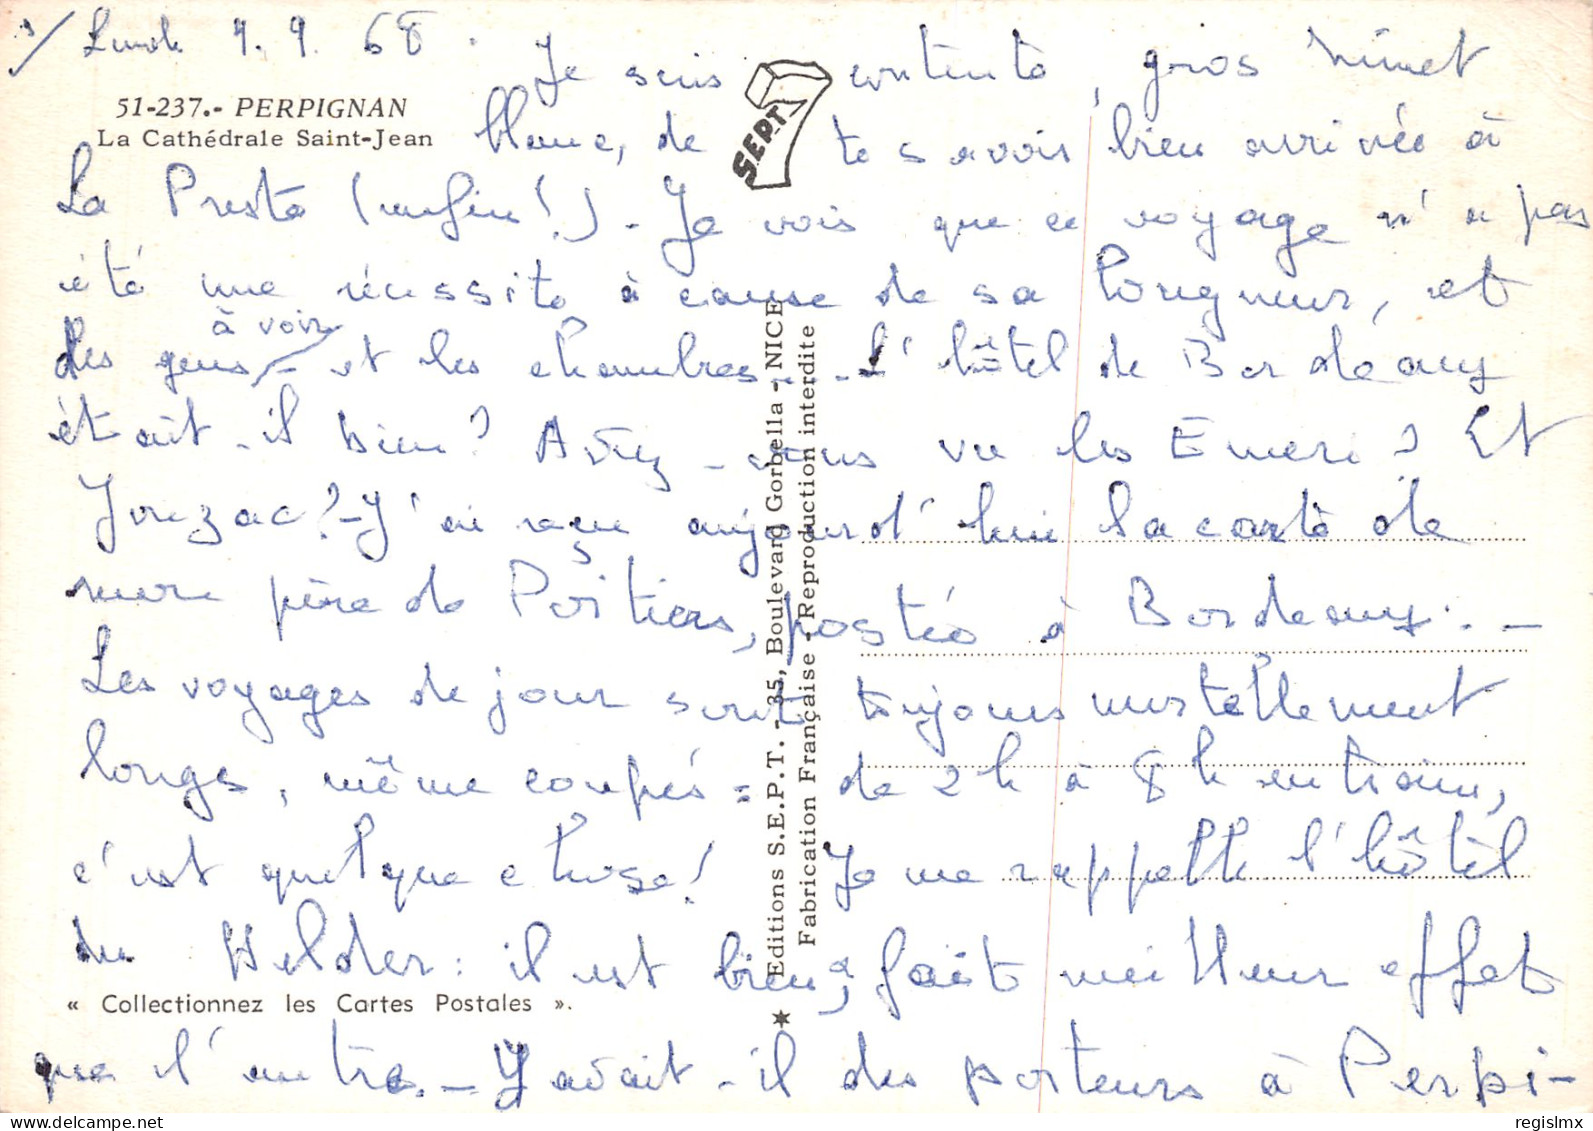 1/ Lundi 9.9.68.
Je suis contente, gros minet
51-237.- PERPIGNAN
La Cathédrale Saint-Jean
SEPT
blanc, de te savoir bien arrivée à
La Preste (enfin!) - Je vois que ce voyage n'a pas
été une réussite à cause de sa longueur, et
des gens à voir - et les chambres... L'hôtel de Bordeaux
était-il bien? Avez-vous vu les Emeri? Et
Jonzac? - J'ai reçu aujourd'hui la carte de
mon père de Poitiers, postée à Bordeaux. -
Les voyages de jour sont toujours mortellement
longs, même coupés: de 2h à 8h en train,
c'est quelque chose! Je me rappelle l'hôtel
du Helder: il est bien, fait meilleur effet
« Collectionnez les Cartes Postales ».
que l'autre. - Y avait-il des porteurs à Perpi-
Editions S.E.P.T. - 35, Boulevard Gorbella - NICE
Fabrication Française - Reproduction interdite
delcampe.net
regislmx